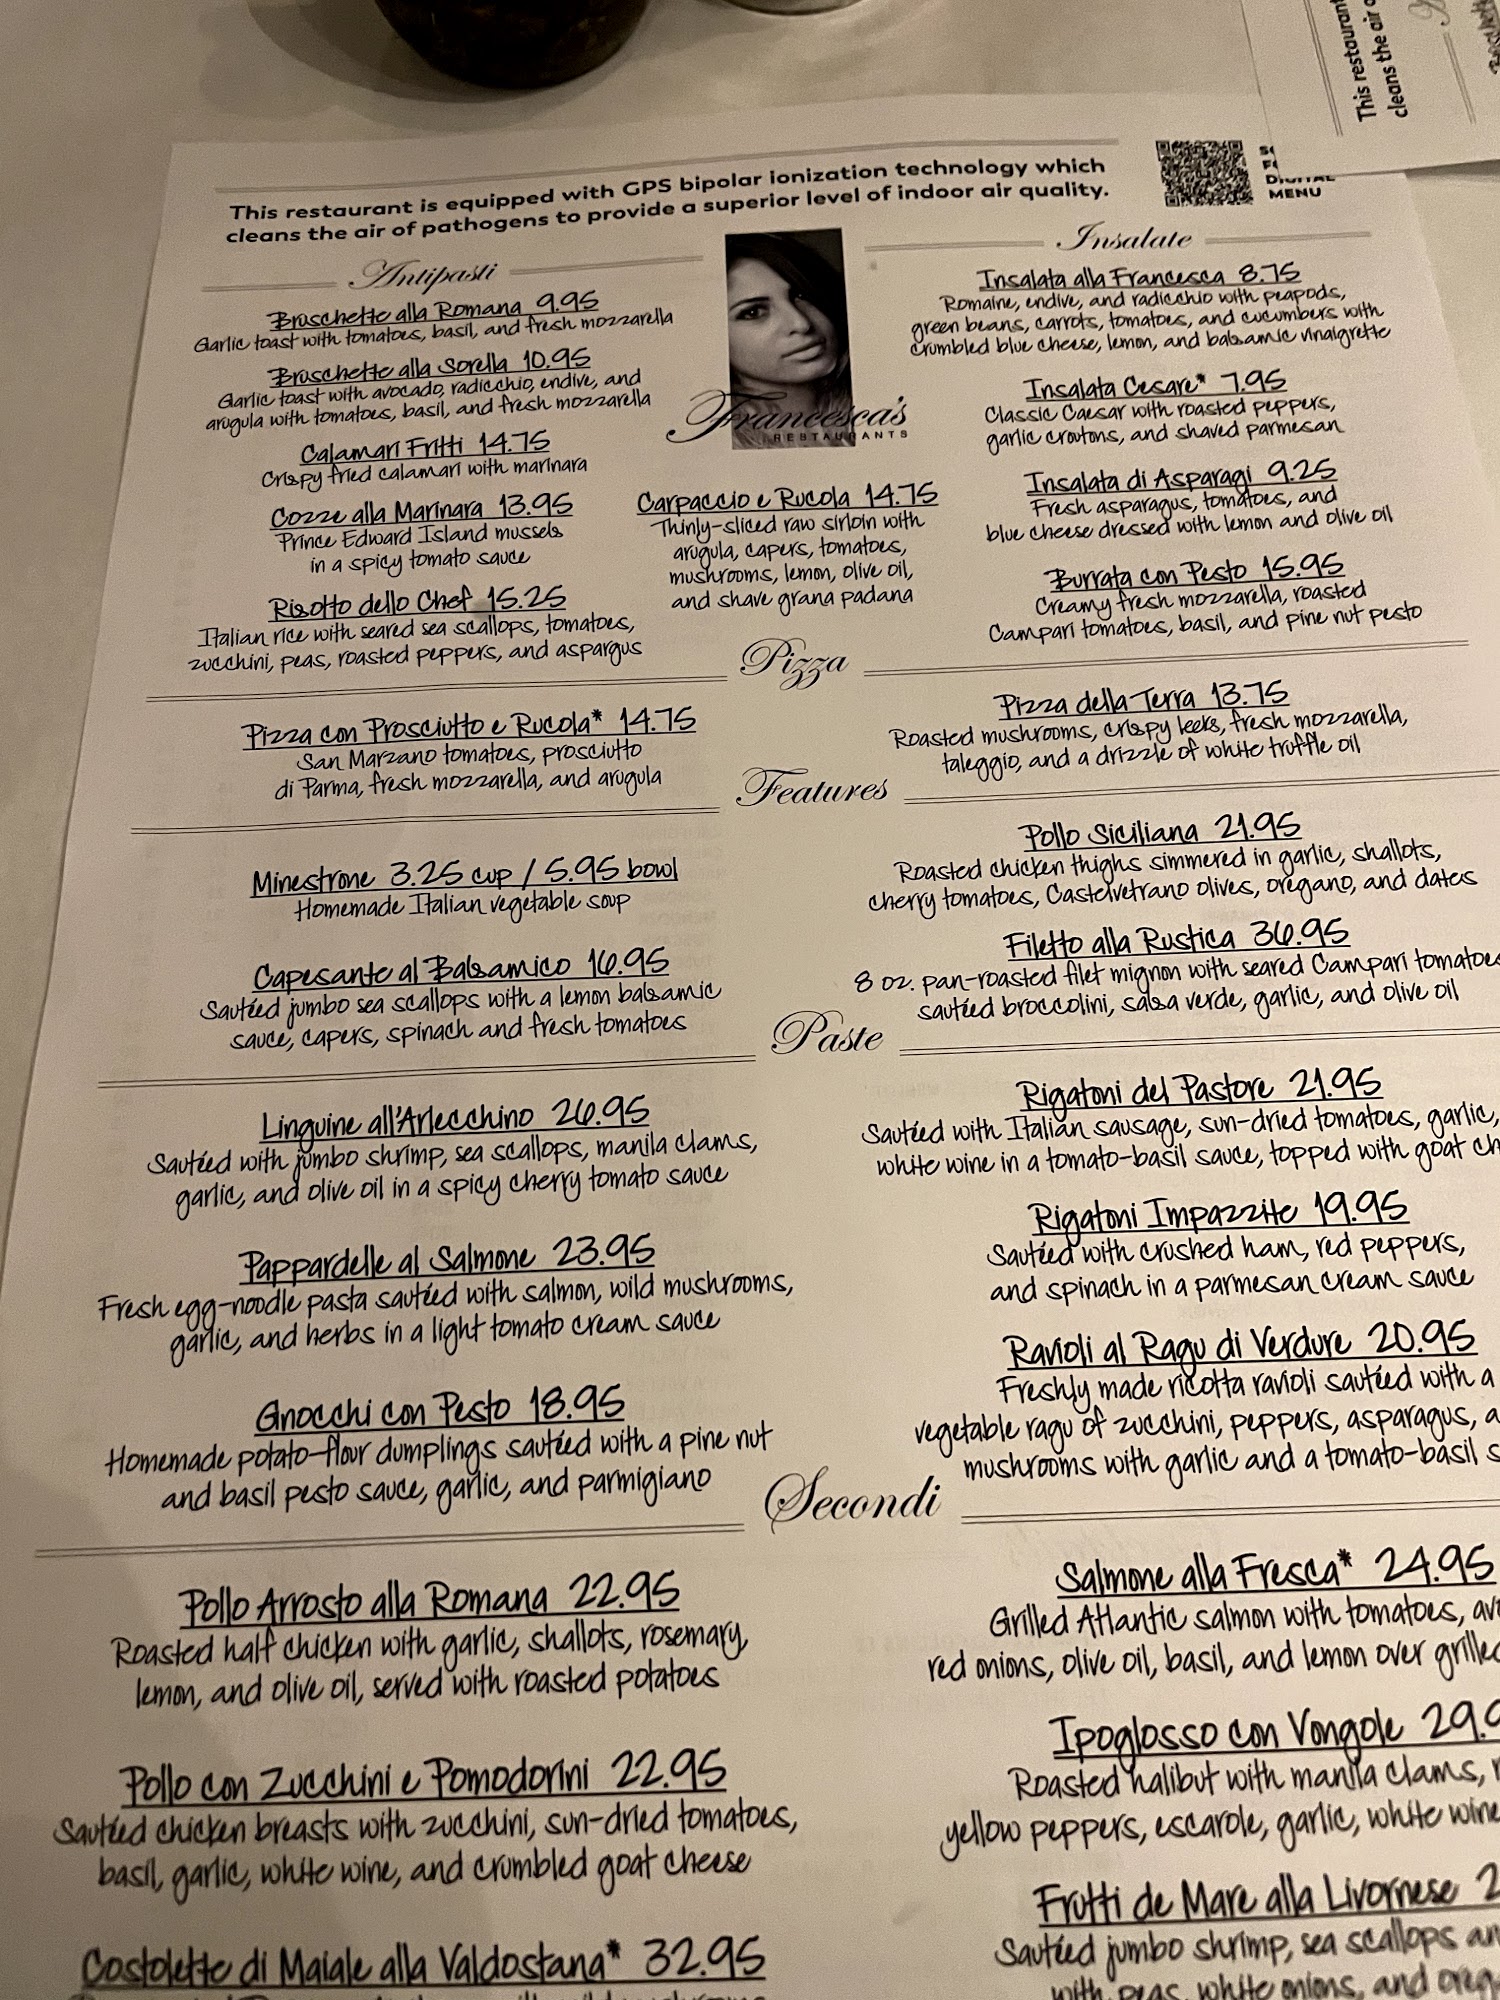 This restaurant is equipped with GPS bipolar ionization technology which
cleans the air of pathogens to provide a superior level of indoor air quality.
DIGITAL
MENU
This restaurant
cleans the air o
Antipasti
Bruschette alla Romana 9.95
Garlic toast with tomatoes, basil, and fresh mozzarella
Bruschette alla Sorella 10.95
Garlic toast with avocado, radicchio, endive, and
arugula with tomatoes, basil, and fresh mozzarella
Calamari Fritti 14.75
Crispy fried calamari with marinara
Cozze alla Marinara 13.95
Prince Edward Island mussels
in a spicy tomato sauce
Risotto dello Chef 15.25
Italian rice with seared sea scallops, tomatoes,
zucchini, peas, roasted peppers, and aspargus
Francesca's
RESTAURANTS
Carpaccio e Rucola 14.75
Thinly-sliced raw sirloin with
arugula, capers, tomatoes,
mushrooms, lemon, olive oil,
and shave grana padana
Insalate
Insalata alla Francesca 8.75
Romaine, endive, and radicchio with peapods,
green beans, carrots, tomatoes, and cucumbers with
crumbled blue cheese, lemon, and balsamic vinaigrette
Insalata Cesare* 7.95
Classic Caesar with roasted peppers,
garlic croutons, and shaved parmesan
Insalata di Asparagi 9.25
Fresh asparagus, tomatoes, and
blue cheese dressed with lemon and olive oil
Burrata con Pesto 15.95
Creamy fresh mozzarella, roasted
Campari tomatoes, basil, and pine nut pesto
Pizza
Pizza con Prosciutto e Rucola* 14.75
San Marzano tomatoes, prosciutto
di Parma, fresh mozzarella, and arugula
Pizza della Terra 13.75
Roasted mushrooms, crispy leeks, fresh mozzarella,
taleggio, and a drizzle of white truffle oil
Features
Minestrone 3.25 cup / 5.95 bowl
Homemade Italian vegetable soup
Capesante al Balsamico 16.95
Sautéed jumbo sea scallops with a lemon balsamic
sauce, capers, spinach and fresh tomatoes
Pollo Siciliana 21.95
Roasted chicken thighs simmered in garlic, shallots,
cherry tomatoes, Castelvetrano olives, oregano, and dates
Filetto alla Rustica 36.95
8 oz. pan-roasted filet mignon with seared Campari tomatoes
sautéed broccolini, salsa verde, garlic, and olive oil
Paste
Linguine all'Arlecchino 26.95
Sautéed with jumbo shrimp, sea scallops, manila clams,
garlic, and olive oil in a spicy cherry tomato sauce
Pappardelle al Salmone 23.95
Fresh egg-noodle pasta sautéed with salmon, wild mushrooms,
garlic, and herbs in a light tomato cream sauce
Gnocchi con Pesto 18.95
Homemade potato-flour dumplings sautéed with a pine nut
and basil pesto sauce, garlic, and parmigiano
Rigatoni del Pastore 21.95
Sautéed with Italian sausage, sun-dried tomatoes, garlic,
white wine in a tomato-basil sauce, topped with goat ch
Rigatoni Impazzite 19.95
Sautéed with crushed ham, red peppers,
and spinach in a parmesan cream sauce
Ravioli al Ragu di Verdure 20.95
Freshly made ricotta ravioli sautéed with a
vegetable ragu of zucchini, peppers, asparagus, a
mushrooms with garlic and a tomato-basil s
Secondi
Pollo Arrosto alla Romana 22.95
Roasted half chicken with garlic, shallots, rosemary,
lemon, and olive oil, served with roasted potatoes
Pollo con Zucchini e Pomodorini 22.95
Sautéed chicken breasts with zucchini, sun-dried tomatoes,
basil, garlic, white wine, and crumbled goat cheese
Costolette di Maiale alla Valdostana* 32.95
Salmone alla Fresca* 24.95
Grilled Atlantic salmon with tomatoes, avo
red onions, olive oil, basil, and lemon over grilled
Ipoglosso con Vongole 29.9
Roasted halibut with manila clams, r
yellow peppers, escarole, garlic, white wine
Frutti de Mare alla Livornese 2
Sautéed jumbo shrimp, sea scallops an
with peas, white onions, and oreg